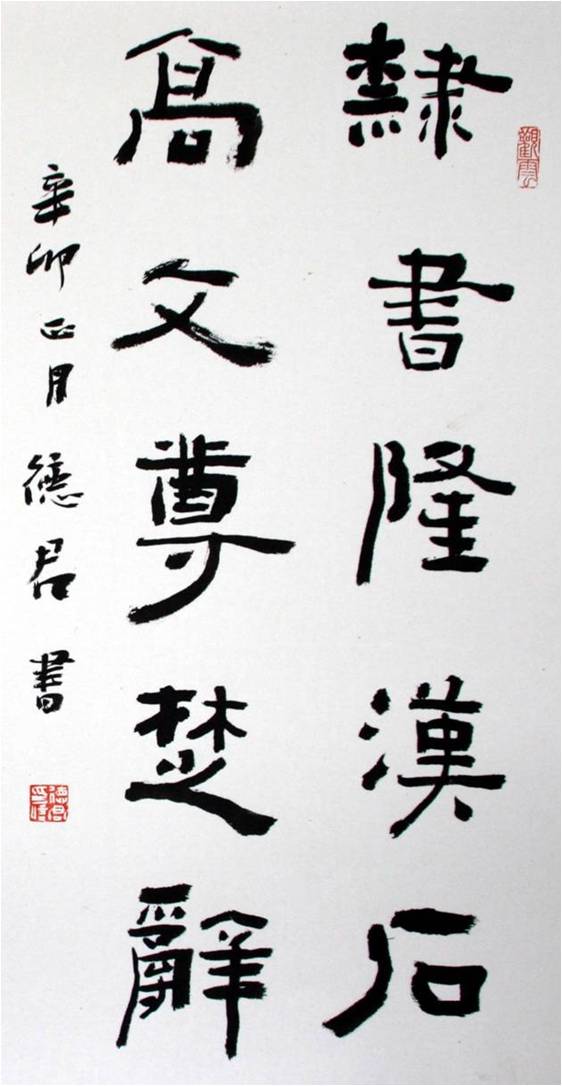 觀雲
隸書隆漢石
高文尊楚辭
辛卯正月德君書